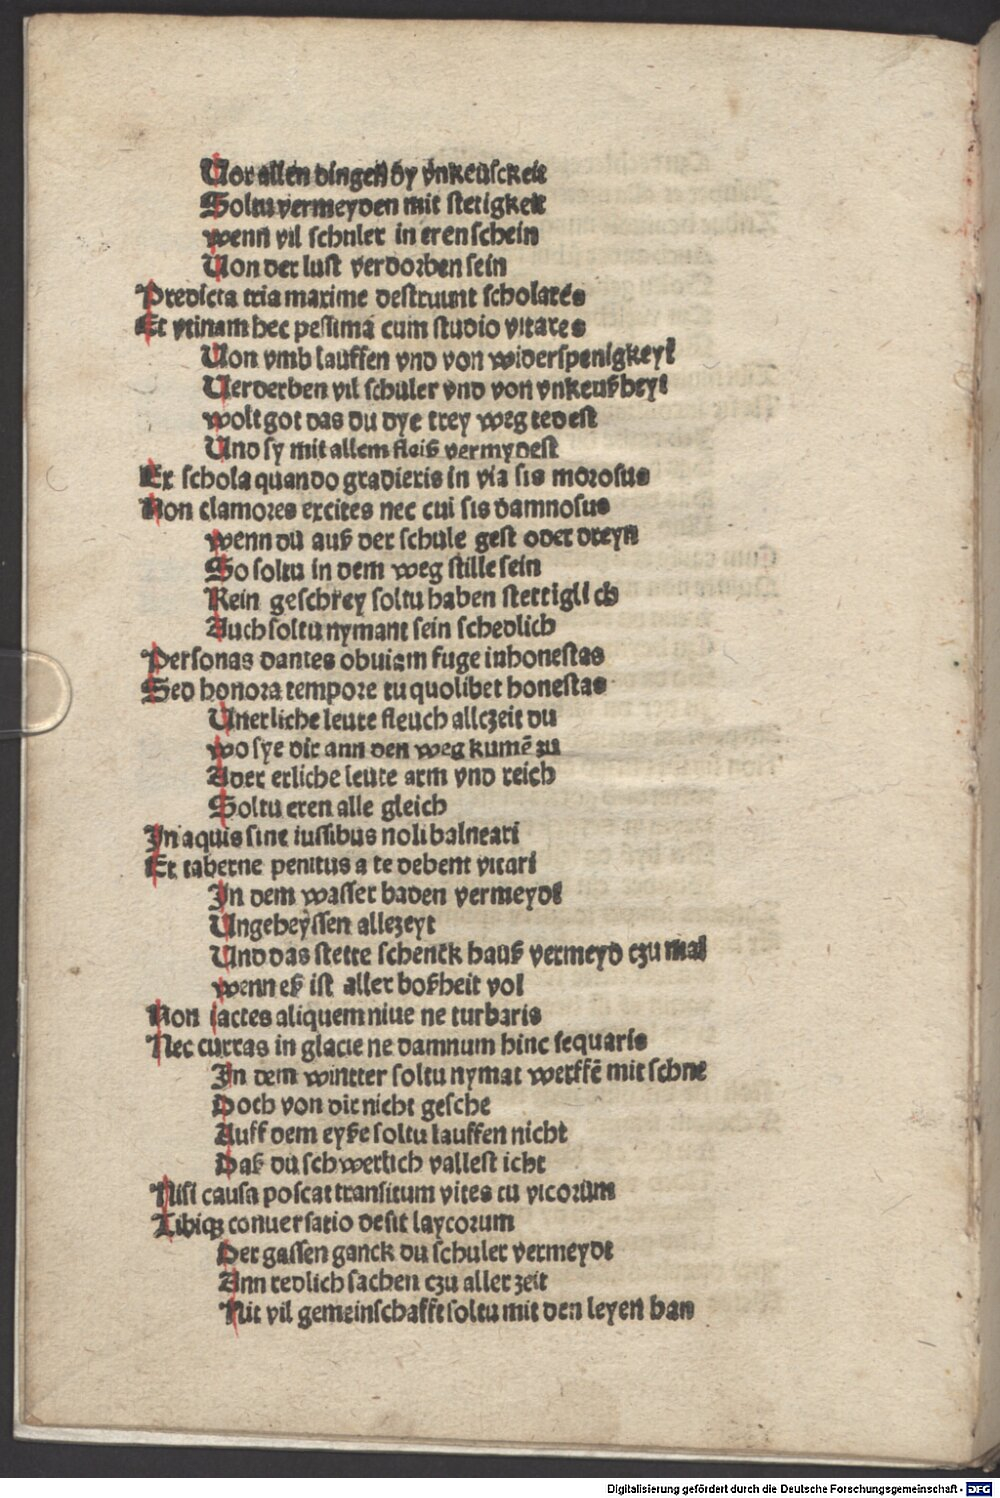 Uor allen dingen dy vnkeusckeit
Soltu vermeyden mit stetigkeit
wenn vil schuler in eren schein
Uon der lust verdorben sein
Predicta tria maxime destruunt scholares
Et vtinam hec pessima cum studio vitares
Uon vmb lauffen vnd von widerspenigkeyt
Uerderben vil schuler vnd von vnkeußheyt
wolt got das du dye trey weg tedest
Und sy mit allem fleiß vermydest
Ex schola quando gradieris in via sis morosus
Non clamores excites nec cui sis damnosus
wenn du auß der schule gest oder dreyn
So soltu in dem weg stille sein
Kein geschrey soltu haben stettiglich
Auch soltu nymant sein schedlich
Personas dantes obuiam fuge inhonestas
Sed honora tempore tu quolibet honestas
Unerliche leute fleuch allczeit du
wo sye dir ann den weg kumē zu
Ader erliche leute arm vnd reich
Soltu eren alle gleich
In aquis sine iussibus noli balneari
Et taberne penitus a te debent vitari
In dem wasser baden vermeyde
Ungeheyssen allezeyt
Und das stette schenck hauß vermeyd czu mal
wenn eß ist aller boßheit vol
Non iactes aliquem niue ne turbaris
Nec curras in glacie ne damnum hinc sequaris
In dem wintter soltu nymat werffē mit schne
Doch von dir nicht gesche
Auff dem eyße soltu lauffen nicht
Daß du schwerlich vallest icht
Nisi causa poscat transitum vites tu vicorum
Tibiqꝫ conuersatio desit laycorum
Der gassen ganck du schuler vermeyde
Ann redlich sachen czu aller zeit
Nit vil gemeinschafft soltu mit den leyen han
Digitalisierung gefördert durch die Deutsche Forschungsgemeinschaft - DFG